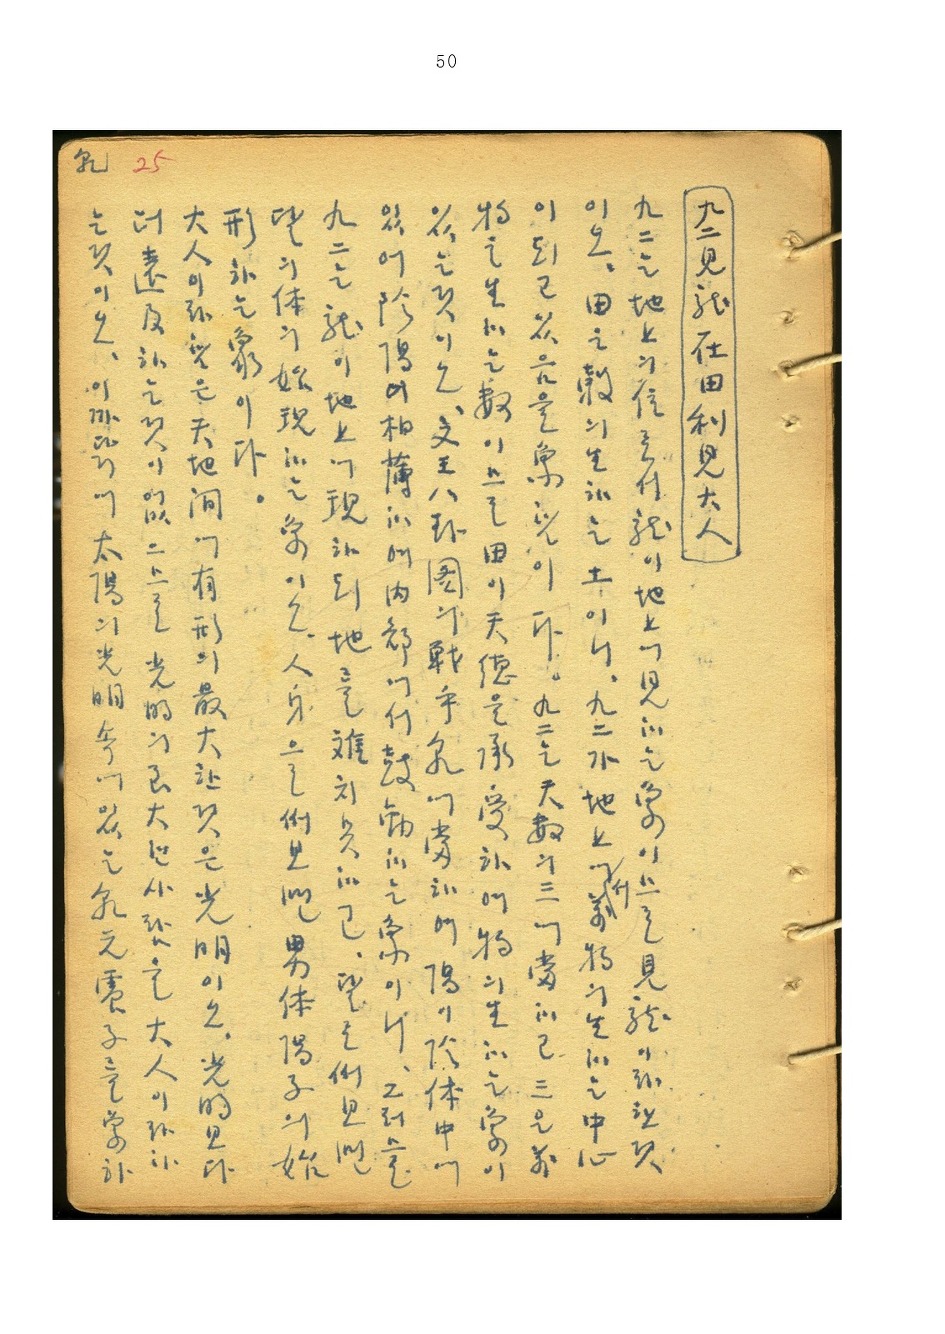 50
乾 25
九二見龍在田利見大人
九二는地上의位로서龍이地上에見하는象이므로見龍이라한것
이오、田은穀의生하는土이니、九二가地上에서萬物의生하는中心
이되고있음을象함이다。九二는天數의三에當하고三은萬
物を生하는數이므로田이天德을承受하여物의生하는象이
있는것이오、文王八卦圖의戰乎乾에當하여陽이陰体中에
있어陰陽이相薄하여內部에서鼓動하는象이니、그러므로
九二는龍이地上에現하되地를離치못하고、
의体의始現하는象이오、人身으로例見면男体陽子의始
形하는象이다。
大人이라함은天地間에有形의最大한것은光明이오、光明보다
더遠及하는것이없으므로光明의큰大人이라하
는것이오、이까닭에太陽의光明속에있는乾元震子를象하